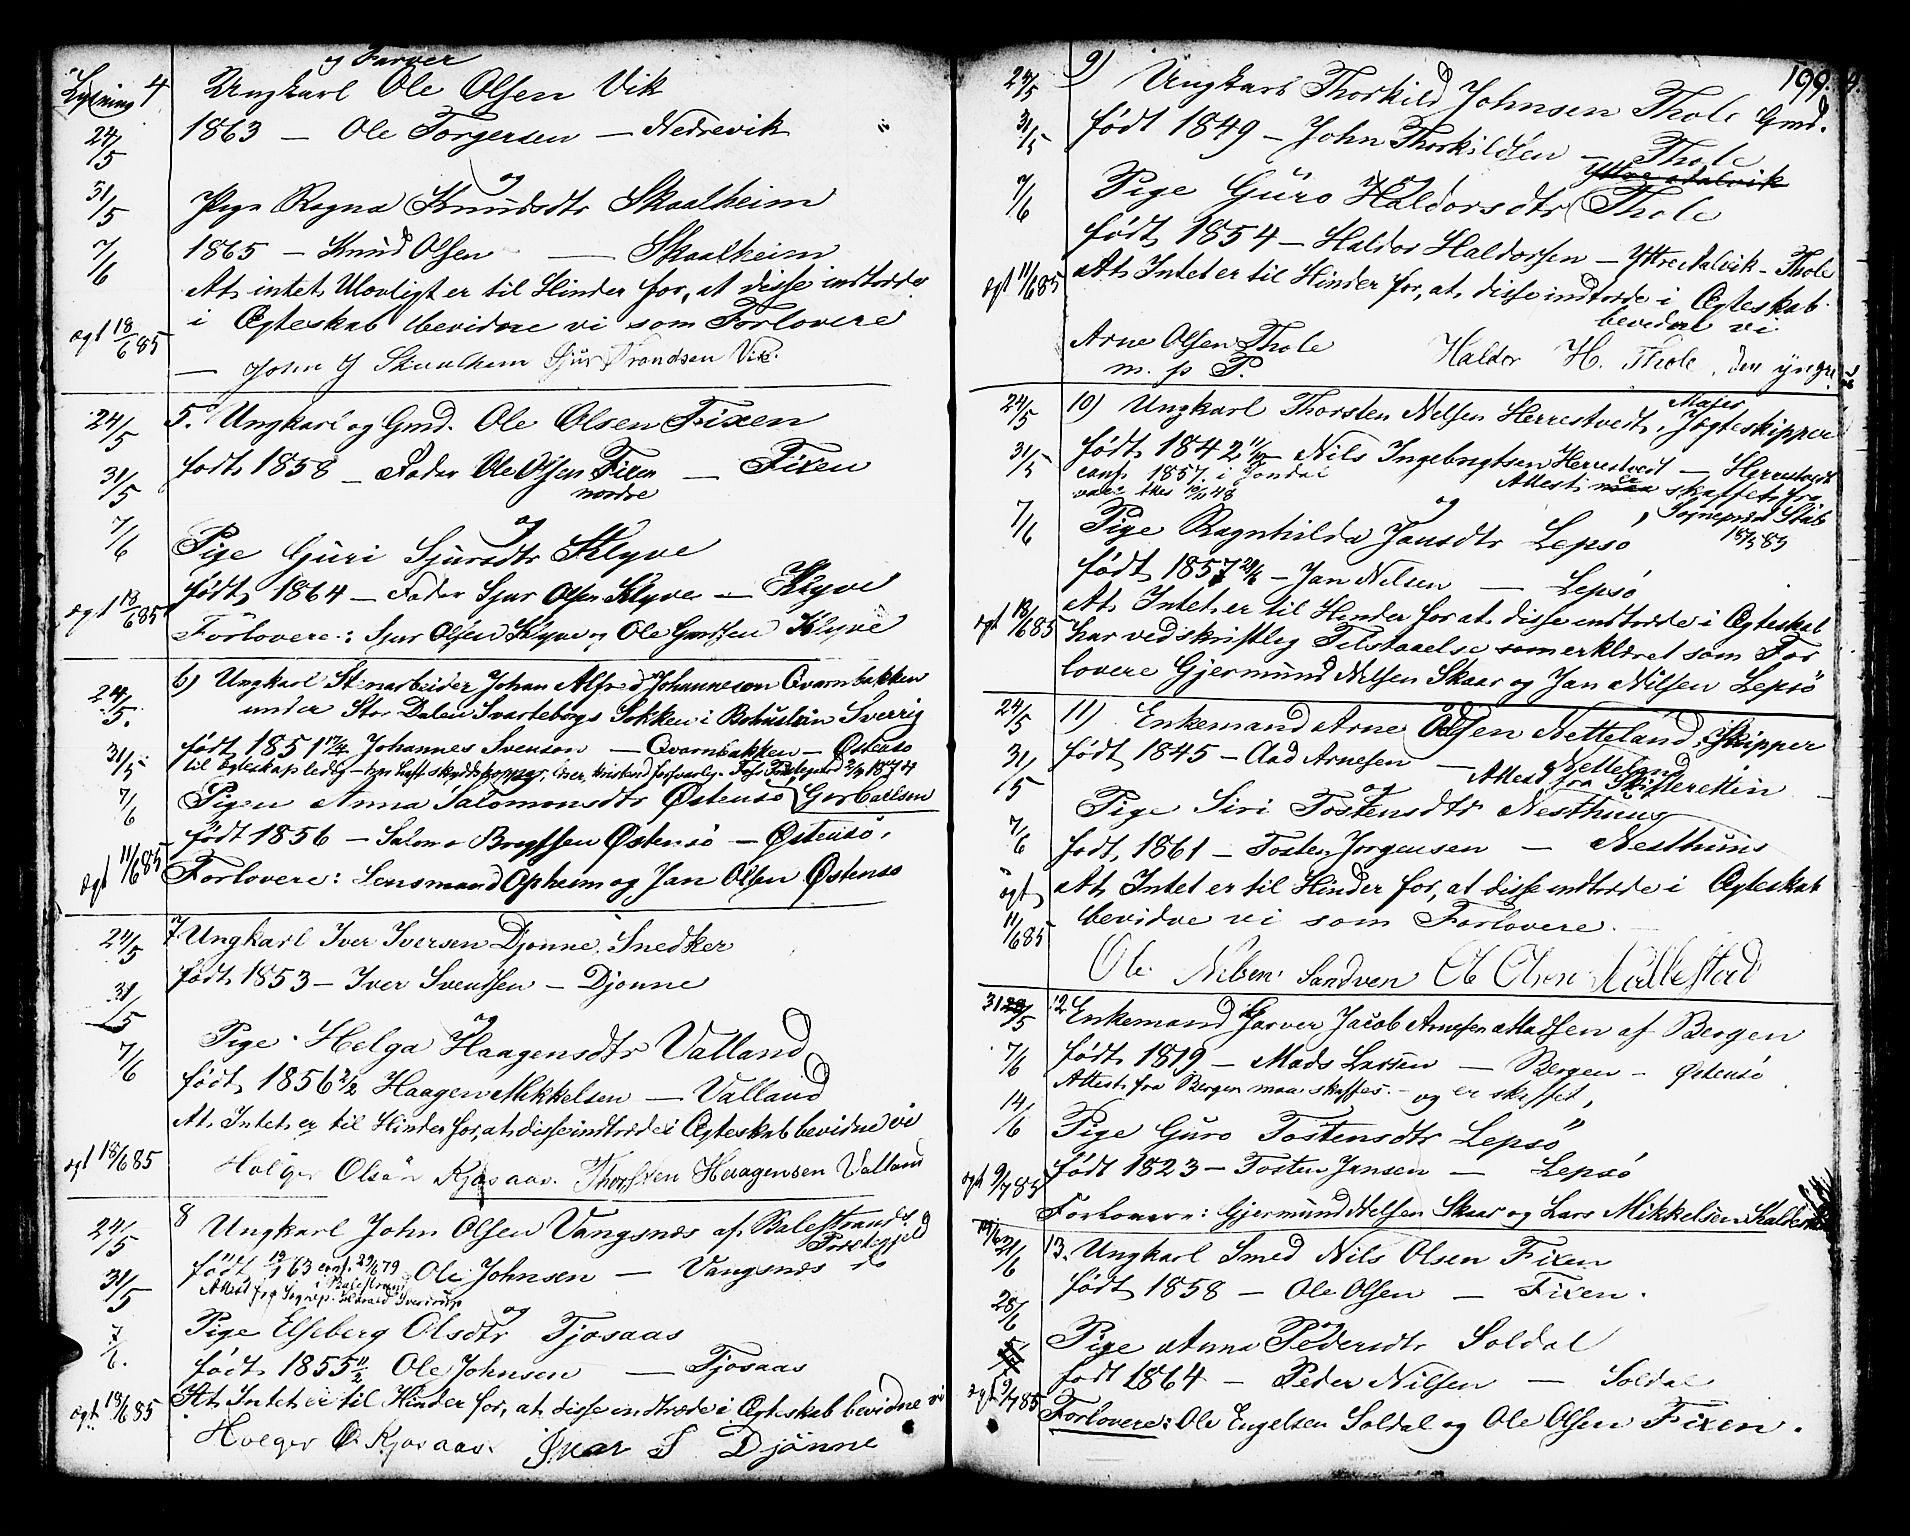 og Farver
Lysning 4 Ungkarl Ole Olsen Vik
24/5 1863 — Ole Torgersen — Nedrevik
og
31/5 Pige Ragna Knudsdtr Skaalheim
7/6 1865 — Knud Olsen — Skaalheim
At intet Ulovligt er til Hinder for, at disse indtræde
ægt 18/6 85 i Ægteskab bevidne vi som Forlovere
— John J Skaalheim Sjur Trondsen Vik.
24/5 5. Ungkarl og Gmd. Ole Olsen Fixen
31/5 født 1858 — Fader Ole Olsen Fixen — Fixen
nordre
7/6 og
Pige Guri Sjursdtr Klyve
ægt 18/6 85 født 1864 — Fader Sjur Olsen Klyve — Klyve
Forlovere: Sjur Olsen Klyve og Ole Klyve
24/5. 6) Ungkarl Stenarbeider Johan Alfred Johanneson Qvarnbakken
under Stor Dalen Svarteborgs Sokken i Bohuslän Sverrig
31/5 født 1851 17/4 Johannes Svenson — Qvarnbakken — Østensø
til Ægteskap ledig
7/6 Pigen Anna Salomonsdtr Østensø
født 1856 — Salomo Østensø — Østensø.
ægt 11/6 85 Forlovere: Lensmand Opheim og Jan Olsen Østensø
24/5 7. Ungkarl Iver Iversen Djønne, Snedker
31/5 født 1853 — Iver Svendsen — Djønne
og
7/6 Pige Helga Haagensdtr Valland
født 1856 2/2 Haagen Mikkelsen — Valland
At Intet er til Hinder for, at disse indtræde i Ægteskab bevidne vi
ægt 18/6 85 Holger Olsen Kjosaas. Thorsten Haagensen Valland
24/5 8 Ungkarl John Olsen Vangsnæs af Balestrands
Præstegjeld
31/5 født 19/1 63 conf. 29/6 79 Ole Johnsen — Vangsnæs do
i Balestrand
Attest fra Sognep. Sverdrup
og
7/6. Pige Elseberg Olsdtr Tjosaas
født 1855 11/2 Ole Johnsen — Tjosaas
ægt 18/6 85 At Intet er til Hinder for, at disse indtræde i Ægteskab bevidne vi
Holger O. Kjosaas. Ivar S Djønne
199.
24/5 9) Ungkarl Thorkild Johnsen Thole Gmd.
31/5 født 1849 — John Thorkildsen — Thole
og Ytre Aalvik
7/6 Pige Guro Haldorsdtr Thole
født 1854 — Haldor Haldorsen — Ytre Aalvik — Thole
ægt 11/6 85 At Intet er til Hinder for, at disse indtræde i Ægteskab
bevidne vi
Arne Olsen Thole Haldor H. Thole, den yngre
m. p. P.
24/5 10) Ungkarl Thorsten Nelsen Herrestvedt, Jægteskipper
31/5 født 1842 Nils Ingebrigtsen Herrestvedt — Herrestvedt
conf. 1857. i Jondal Attest skaffet fra
og Sognepræst
7/6 Pige Ragnhilda Jansdtr Lepsø 15/5 85
født 1857 Jan Nilsen — Lepsø
At Intet er til Hinder for at disse indtræde i Ægteskab
ægt 18/6 85 har ved skriftlig Tilstaaelse erklæret som For
lovere Gjermund Nelsen Skaar og Jan Nilsen Lepsø
24/5 11) Enkemand Arne Odsen Netteland, Skipper
31/5 født 1845 — Aad Arnesen — Netteland
Attest fra Skifteretten
og
Pige Siri Tostensdtr Nesthuus
7/6 født 1861 — Tosten Jørgensen — Nesthuus
ægt At Intet er til Hinder for, at disse indtræde i Ægteskab
11/6 85 bevidne vi som Forlovere.
Ole Nilsen Sandven O. Olsen Kallestad
31/5 12 Enkemand Garver Jacob Arnesen Madsen af Bergen
7/6 født 1819 — Mads Larsen — Bergen — Østensø
Attest fra Bergen maa skaffes. — og er skaffet,
14/6
Pige Guro Tostensdtr Lepsø
ægt 9/7 85 født 1823 — Tosten Jansen — Lepsø
Forlovere: Gjermund Nelsen Skaar og Lars Mikkelsen
21/6 13. Ungkarl Smed Nils Olsen Fixen
født 1858 — Ole Olsen — Fixen.
28/6 og
Pige Anna Pedersdtr Soldal
født 1864 — Peder Nilsen — Soldal
ægt 9/7 85 Forlovere: Ole Engelsen Soldal og Ole Olsen Fixen.